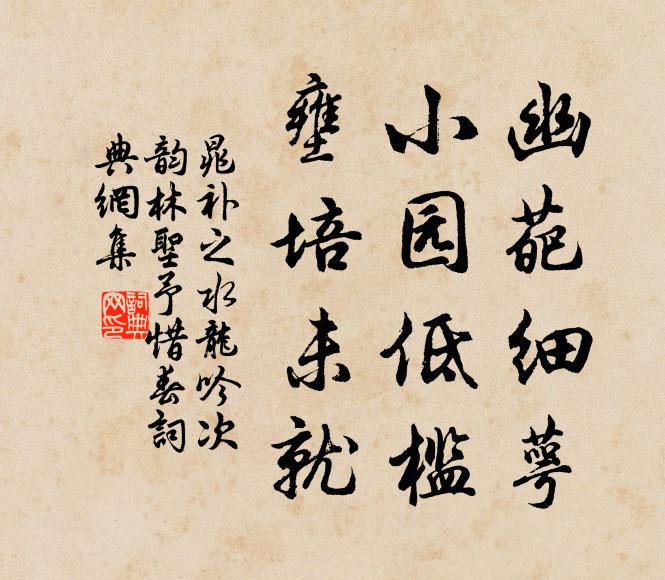 幽葩细萼
小园低槛
壅培未就
晁补之水龍吟次
韵林聖予惜春詞
典網集
詞典
网印